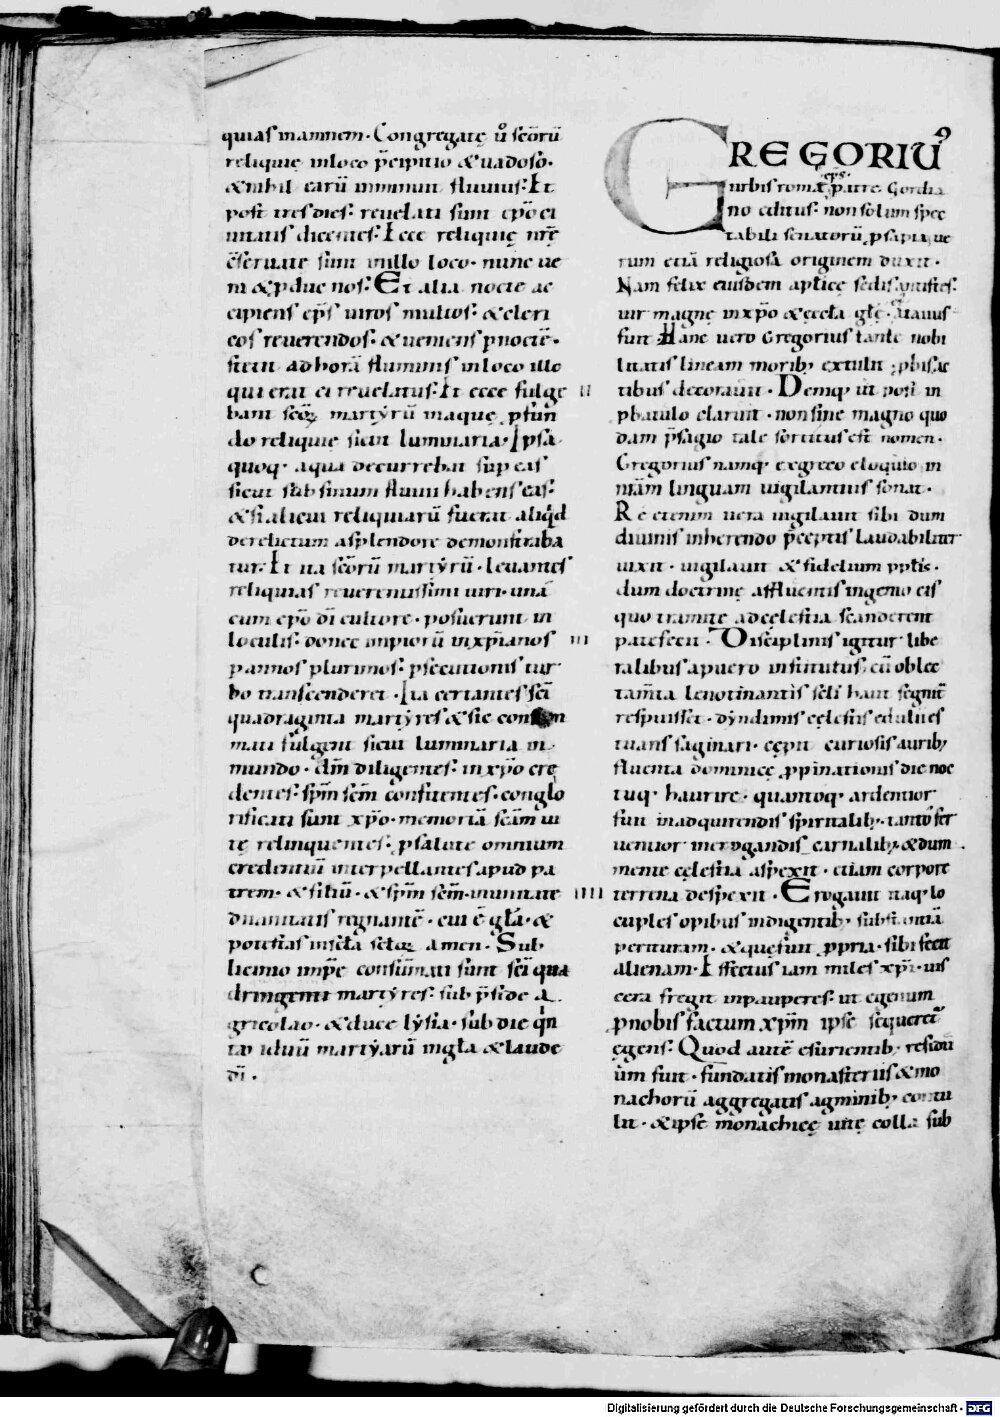 quias in amnem · Congregatę ů sc̄orū
reliquię in loco p̄cipitio & uadoso ·
& nihil earū minuit fluuius: Et
post tres dies: reuelati sunt ep̄o ci
uitatis dicentes: Ecce reliquię nr̄ę
c̄seruatę sunt in illo loco · nunc ue
ni & p̱duc nos: Et alia nocte ac
cipiens ep̄s uiros multos: & cleri
cos reuerendos: & ueniens p̱noctē ·
stetit ad horā fluminis in loco illo
qui erat ei reuelatus: Et ecce fulge
bant sc̄oꝝ martyrū in aquę p̱fun
do reliquię sicut luminaria · Ipsa
quoq · aqua decurrebat sup eas
sicut sub sinum fluuii habens eas:
& si alicui reliquiarū fuerat aliqd
derelictum a splendore demonstraba
tur · Et ita sc̄orū martyrū · leuantes
reliquias reuerentissimi uiri · unā
cum ep̄o dī cultore · posuerunt in
loculis · donec impiorū in xp̄ianos
pannos plurimos: p̱secutionis tur
bo transcenderet · Ita certantes sc̄i
quadraginta martyres & sic
mati fulgent sicut luminaria in
mundo · dm̄ diligentes: in xp̄o cre
dentes: sp̄m sc̄m confitentes · conglo
rificati sunt xp̄o · memoriā sc̄am ui
tę relinquentes: p̱ salute omnium
credentiū interpellantes apud pa
trem · & filiū · & sp̄m sc̄m · in unitate
diuinitatis regnantē · cui ē gła · &
potestas in scła scłoꝝ amen · Sub
licinio imp̄e consūmati sunt sc̄i qua
dringenti martyres: sub p̄side a
gricolao · & duce lysia · sub die qn
to iduū martyarū in gła & laude
dī ·
GREGORIUꝰ
urbis romę ep̄s · patre Gordia
no editus: non solum spec
tabili senatorū p̱sapia, ue
rum etiā religiosa originem duxit ·
Nam felix eiusdem aplicę sedis antistes:
uir magnę in xp̄o & ęccła głę · attauus
fuit Hanc uero Gregorius tantę nobi
litatis lineam moribꝫ extulit · p̱bis ac
tibus decorauit · Deniq ut post in
p̱batulo claruit · non sine magno quo
dam p̄sagio tale sortitus est nomen ·
Gregorius namq ex greco eloquio in
nr̄am linguam uigilantius sonat ·
Re etenim uera uigilauit sibi dum
diuinis inherendo p̄ceptis laudabiliter
uixit · uigilauit & fidelium pplis ·
dum doctrinę affluentis ingenio eis
quo tramite ad cęlestia scanderent
patefecit · Disciplinis igitur libe
ralibus a puero institutus: cū oblec
tam̄ta lenocinantis scłi haut segnit̄
respuisset · dyndimis cęlestis edulii es
tuans saginari · cępit curiosis auribꝫ
fluenta dominicę p̱pinationis die noc
tuq · haurire · quantoq ardentior
fuit in adquirendis spiritalibꝫ · tanto fer
uentior in erogandis carnalibꝫ & dum
mente cęlestia aspexit · etiam corpore
terrena despexit · Erogauit itaq lo
cuples opibus indigentibꝫ substantiā
perituram · & quę fuit p̱pria · sibi fecit
alienam · Effectus iam miles xp̄i · uis
cera fregit in pauperes: ut egenum
p̱ nobis factum xp̄m ipse sequeret̄
ęgens: Quod autē esurientibꝫ residu
um fuit · fundatis monasteriis & mo
nachorū aggregatis agminibꝫ contu
lit · & ipse monachicę uitę colla sub
II
III
IIII
Digitalisierung gefördert durch die Deutsche Forschungsgemeinschaft - DFG